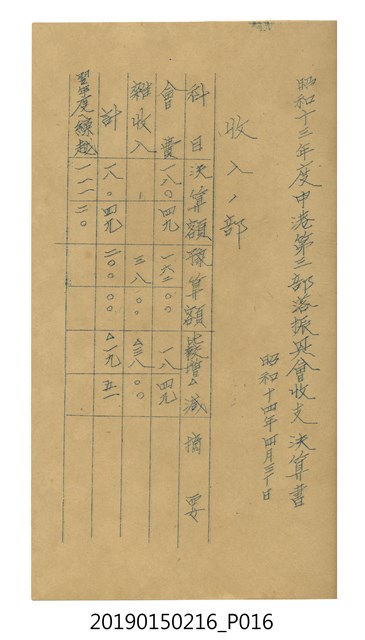 昭和十三年度中港第三部落振興會收支決算書
昭和十四年四月三十日
收入ノ部
科目 決算額 豫算額 比較增△減 摘要
會費 一八〇 四九 一六二 〇〇 一八 四九
雜收入 - 三八 〇〇 △三八 〇〇
計 一八〇 四九 二〇〇 〇〇 △一九 五一
翌年度繰越 一一一 二〇
20190150216_P016